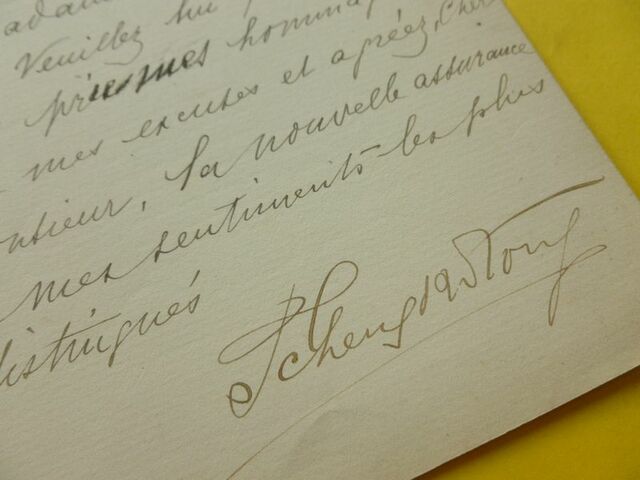 Veuillez lui
mes hommag
mes excuses et agréez, Cher
nsieur, la nouvelle assurance
mes sentiments les plus
distingués
Tcheng Ki Tong